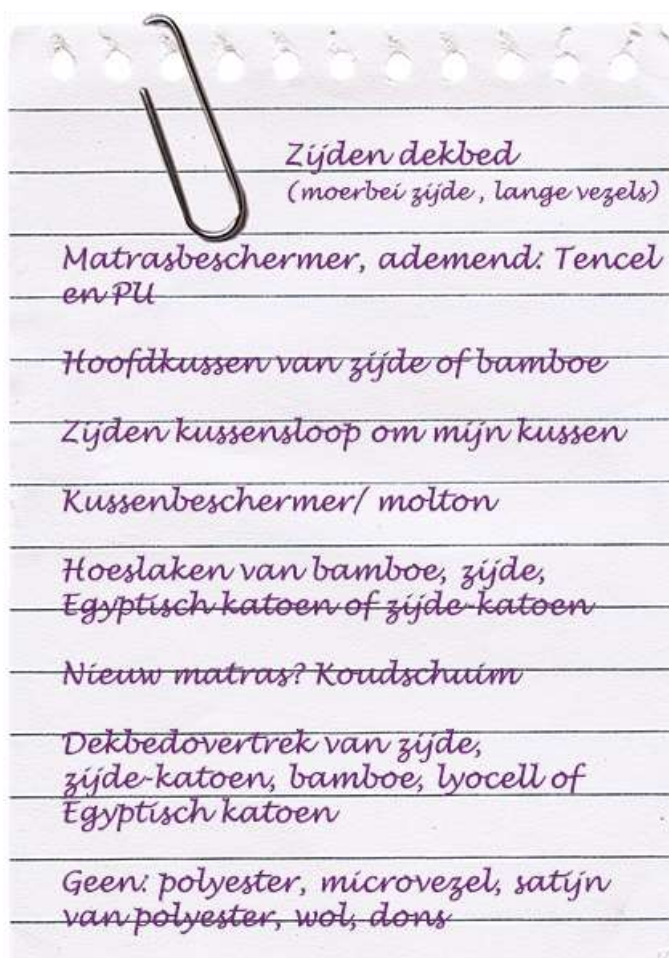 Zijden dekbed
(moerbei zijde , lange vezels)
Matrasbeschermer, ademend: Tencel
en PU
Hoofdkussen van zijde of bamboe
Zijden kussensloop om mijn kussen
Kussenbeschermer/ molton
Hoeslaken van bamboe, zijde,
Egyptisch katoen of zijde-katoen
Nieuw matras? Koudschuim
Dekbedovertrek van zijde,
zijde-katoen, bamboe, lyocell of
Egyptisch katoen
Geen: polyester, microvezel, satijn
van polyester, wol, dons